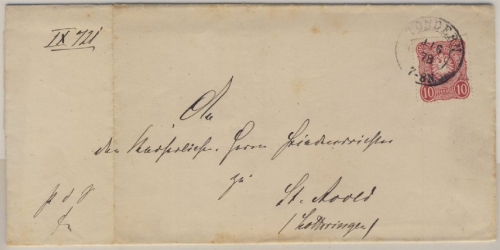 IX 721
TONDERN
1/6
78
7-8N
10 10
An
den Kaiserlichen Herrn Friedensrichter
zu
St. Avold
(Lothringen)